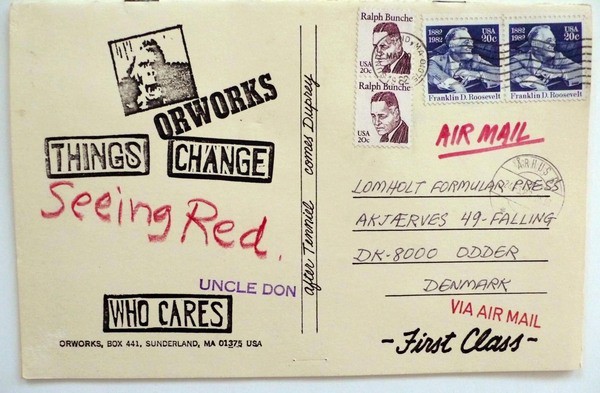 ORWORKS
THINGS CHANGE
Seeing Red.
UNCLE DON
WHO CARES
ORWORKS, BOX 441, SUNDERLAND, MA 01375 USA
after Tenniel comes Dupray
Ralph Bunche
USA
20c
Ralph Bunche
USA
20c
1882
1982
USA
20c
Franklin D. Roosevelt
1882
1982
USA
20c
Franklin D. Roosevelt
AIR MAIL
ÅRHUS
LOMHOLT FORMULAR PRESS
AKJÆRVES 49-FALLING
DK-8000 ODDER
DENMARK
VIA AIR MAIL
-First Class-